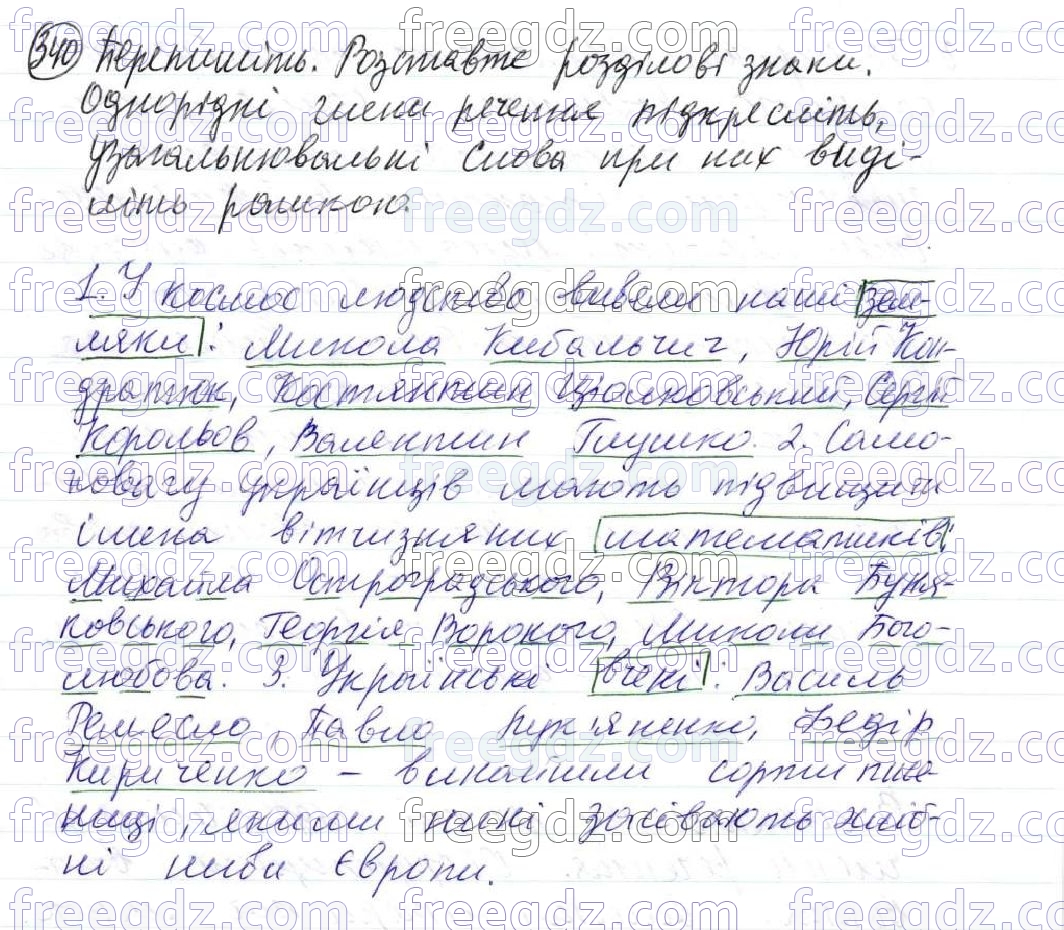 340 Перепишіть. Розставте розділові знаки.
Однорідні члени речення підкресліть,
узагальнювальні слова при них виді-
літь рамкою.
1. У космос людство вивели наші зем-
ляки: Микола Кибальчич, Юрій Кон-
дратюк, Костянтин Ціолковський, Сергій
Корольов, Валентин Глушко. 2. Само-
повагу українців мають підвищити
імена вітчизняних математиків:
Михайла Остроградського, Віктора Буня-
ковського, Георгія Вороного, Миколи Бого-
любова. 3. Українські вчені: Василь
Ремесло, Павло Лук'яненко, Федір
Кириченко – винайшли сорти пше-
ниці, якими нині засівають хліб-
ні ниви Європи.
freegdz.com